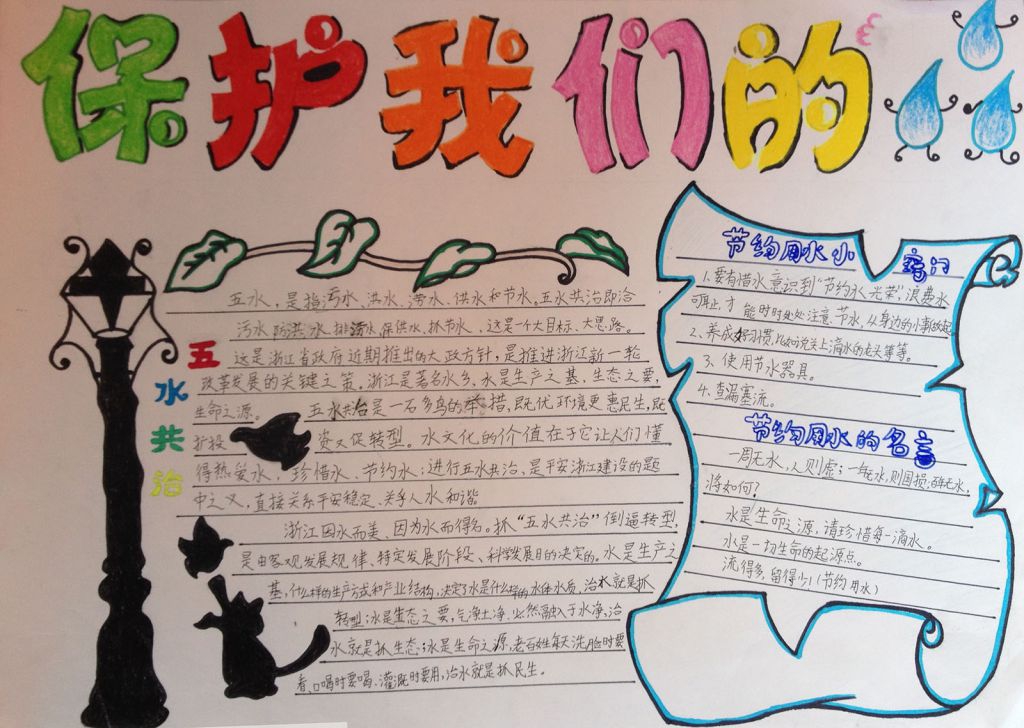 保护我们的
五水共治
五水，是指污水、洪水、涝水、供水和节水。五水共治即治
污水、防洪水、排涝水、保供水、抓节水，这是一个大目标、大思路。
这是浙江省政府近期推出的大政方针，是推进浙江新一轮
改革发展的关键之策。浙江是著名水乡，水是生产之基，生态之要，
生命之源。 五水共治是一石多鸟的举措，既优环境更惠民生，既
扩投 资又促转型。水文化的价值在于它让人们懂
得热爱水，珍惜水、节约水；进行五水共治、是平安浙江建设的题
中之义，直接关系平安稳定、关乎人水和谐
浙江因水而美、因为水而得名。抓“五水共治”倒逼转型，
是由客观发展规律、特定发展阶段、科学发展目的决定的。水是生产之
基，什么样的生产方式和产业结构，决定了水是什么样的水体水质，治水就是抓
转型；水是生态之要，气净土净，必然融入于水净，治
水就是抓生态；水是生命之源，老百姓每天洗脸时要
看、口喝时要喝、灌溉时要用，治水就是抓民生。
节约用水小窍门
1.要有惜水意识到“节约水光荣”，浪费水
可耻，才能时时处处注意节水，从身边的小事做起
2、养成好习惯，比如说关上滴水的龙头等等。
3、使用节水器具。
4.查漏塞流。
节约用水的名言
一周无水，人则虚；一年无水，则国损；百年无水，
将如何？
水是生命之源，请珍惜每一滴水。
水是一切生命的起源点。
流得多，留得少！（节约用水）